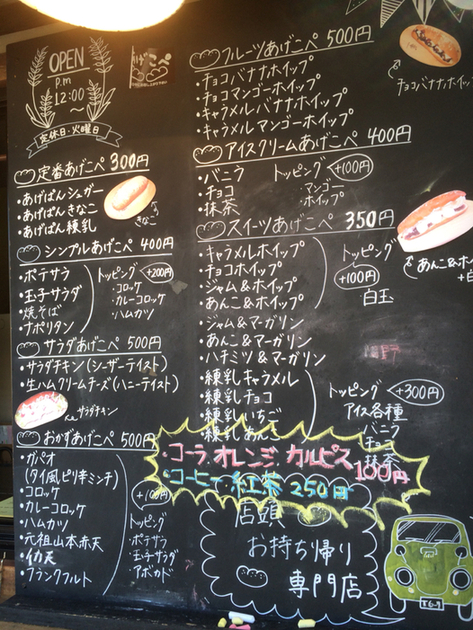 OPEN
P.m
12:00~
定休日・火曜日
あげこぺ
定番あげこぺ 300円
・あげぱんシュガー
・あげぱんきなこ
・あげぱん練乳
きなこ
シンプルあげこぺ 400円
・ポテサラ
・玉子サラダ
・焼そば
・ナポリタン
トッピング +200円
・コロッケ
・カレーコロッケ
・ハムカツ
サラダあげこぺ 500円
・サラダチキン(シーザーテイスト)
・生ハムクリームチーズ(ハニーテイスト)
サラダチキン
おかずあげこぺ 500円
・ガパオ
(タイ風ピリ辛ミンチ)
・コロッケ
・カレーコロッケ
・ハムカツ
・元祖山本赤天
・イカ天
・フランクフルト
+100円
トッピング
・ポテサラ
・玉子サラダ
・アボカド
フルーツあげこぺ 500円
・チョコバナナホイップ
・チョコマンゴーホイップ
・キャラメルバナナホイップ
・キャラメルマンゴーホイップ
チョコバナナホイップ
アイスクリームあげこぺ 400円
・バニラ
・チョコ
・抹茶
トッピング +100円
・マンゴー
・ホイップ
スイーツあげこぺ 350円
・キャラメルホイップ
・チョコホイップ
・ジャム&ホイップ
・あんこ&ホイップ
・ジャム&マーガリン
・あんこ&マーガリン
・ハチミツ&マーガリン
・練乳キャラメル
・練乳チョコ
・練乳いちご
・練乳あんこ
トッピング
+100円
白玉
あんこ&ホイッ
トッピング +300円
アイス各種
・バニラ
・チョコ
・抹茶
・コーラ オレンジ カルピス 100円
・コーヒー 紅茶 250円
店頭
お持ち帰り
専門店